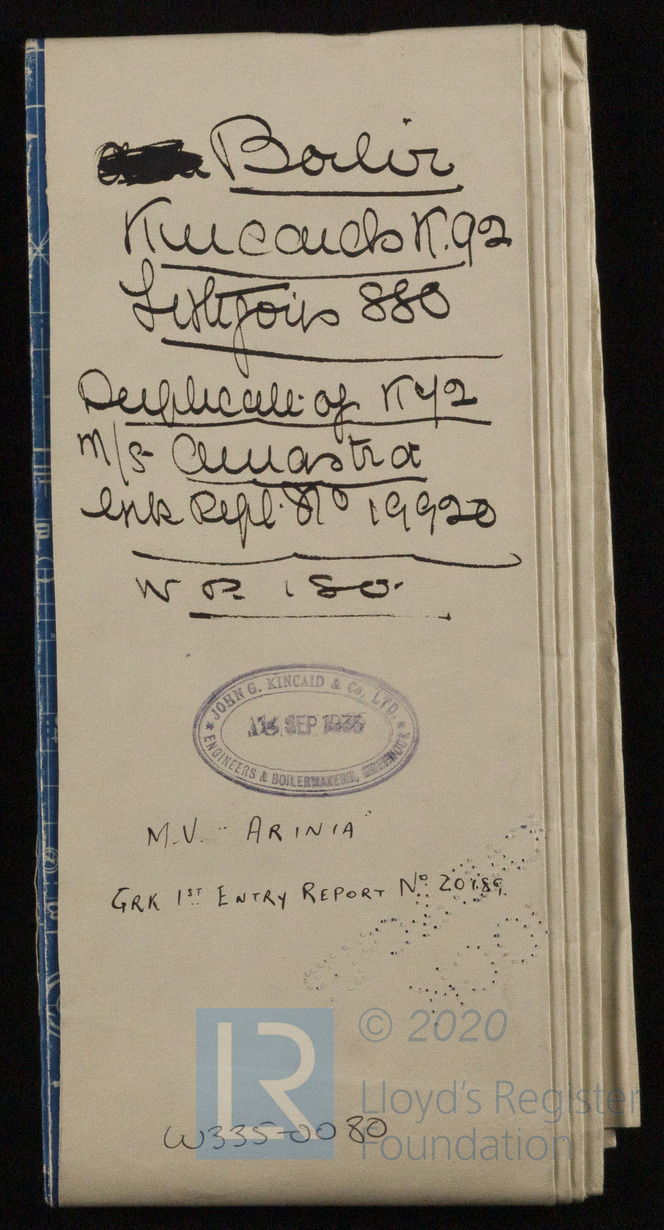 Boiler
Kincaids K.92
Lithgows 880
Duplicate of K 42
M/S Amastra
Grk Rept. No 19920
W P 180.
JOHN G. KINCAID & Co. LTD.
14 SEP 1935
ENGINEERS & BOILERMAKERS, GREENOCK
M.V. "ARINIA"
GRK 1ST ENTRY REPORT No. 20189.
LR © 2020
Lloyd's Register
Foundation
W335-0080